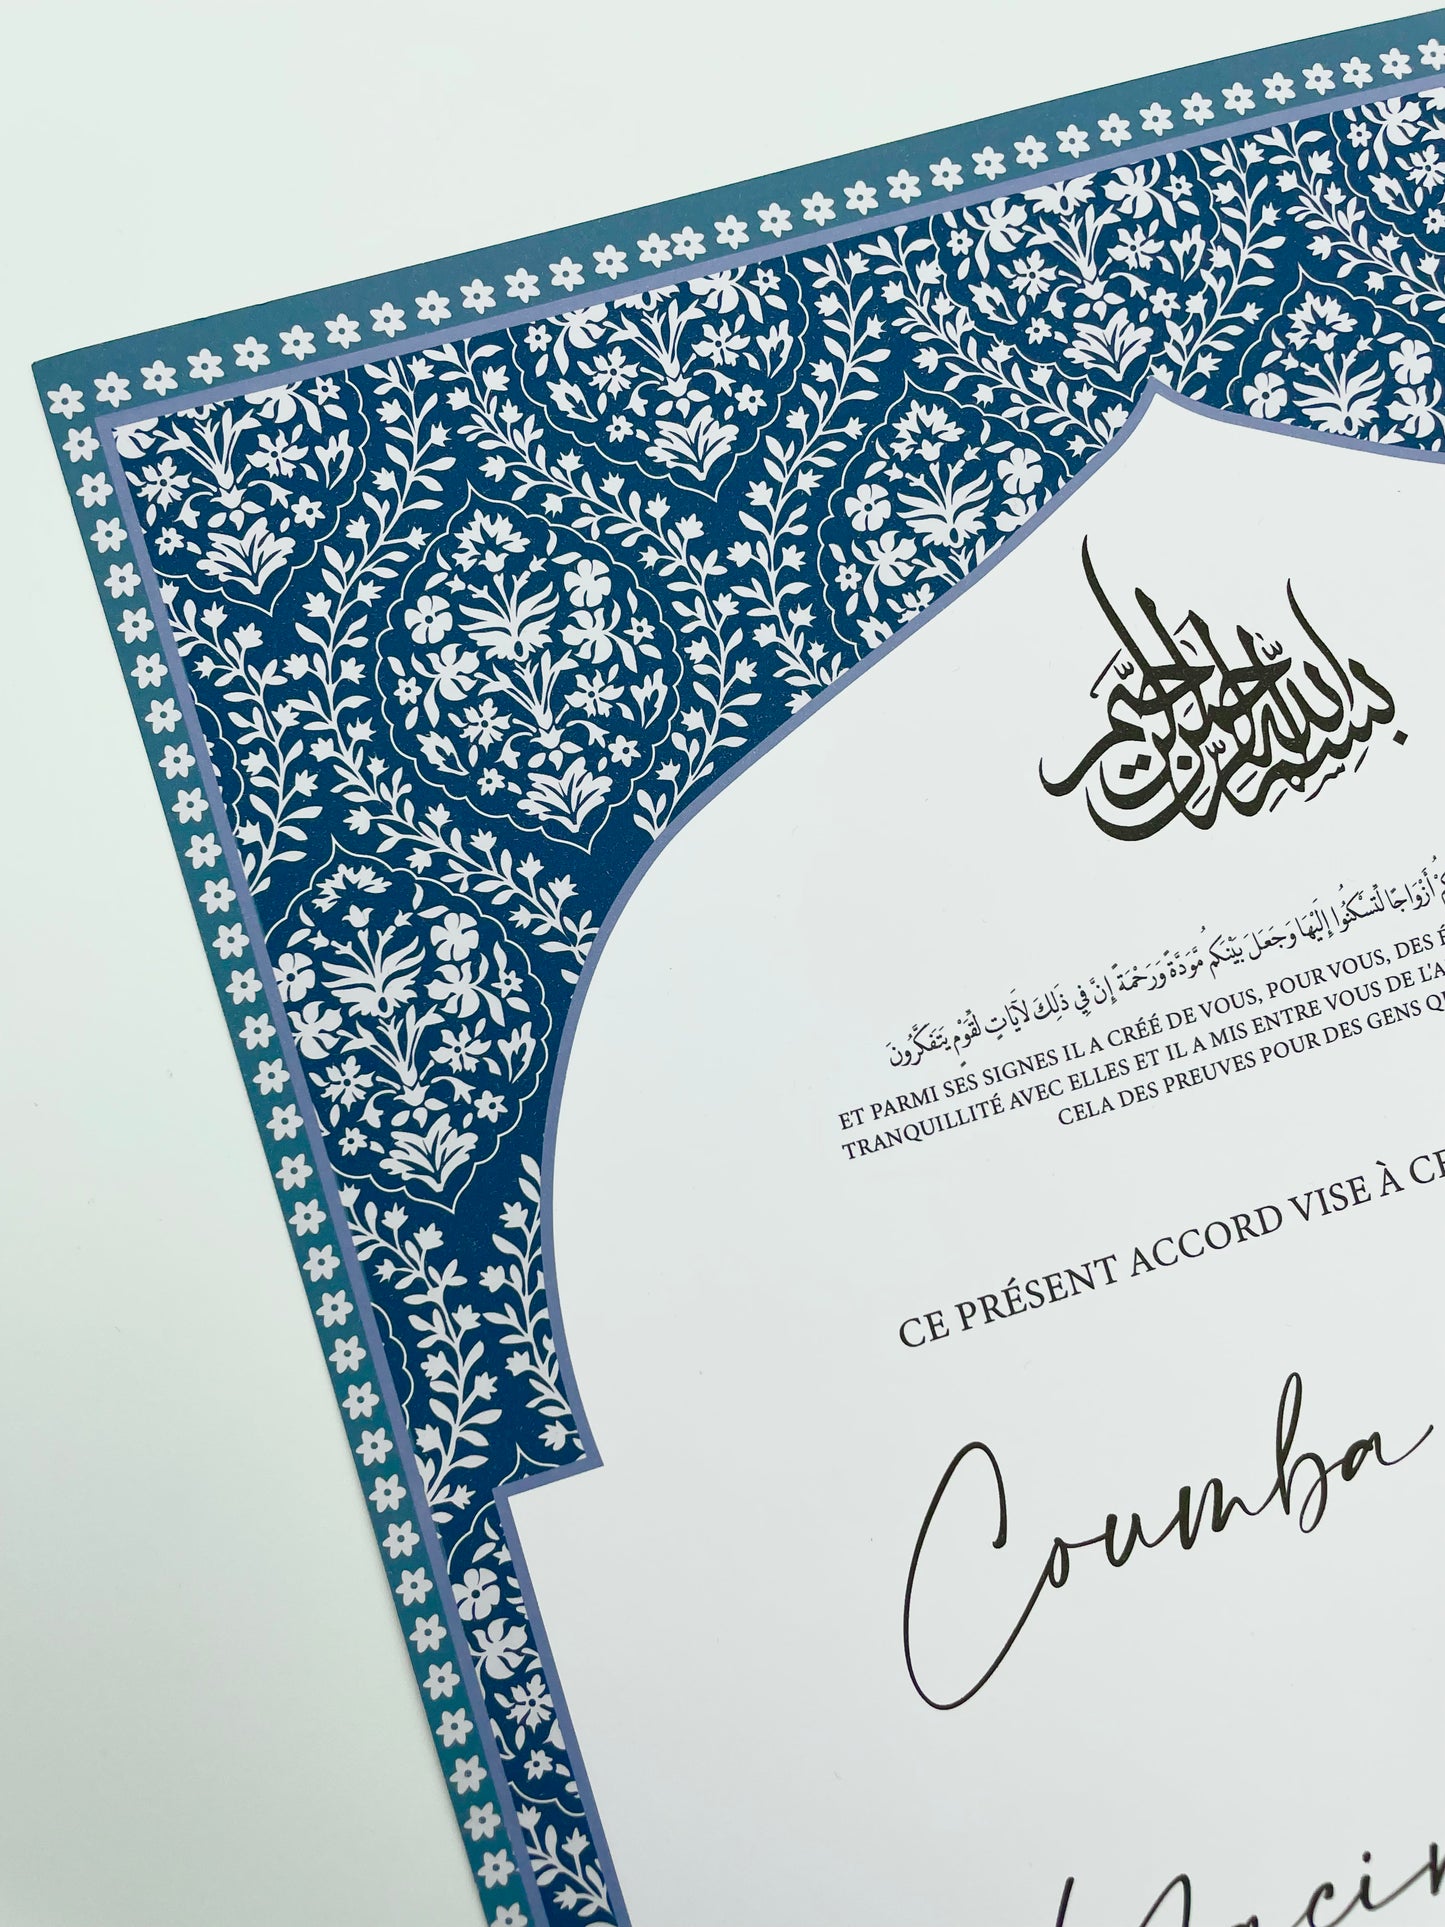 بسم الله الرحمن الرحيم
أَزْوَاجًا لِّتَسْكُنُوا إِلَيْهَا وَجَعَلَ بَيْنَكُم مَّوَدَّةً وَرَحْمَةً إِنَّ فِي ذَلِكَ لَآيَاتٍ لِّقَوْمٍ يَتَفَكَّرُونَ
ET PARMI SES SIGNES IL A CRÉÉ DE VOUS, POUR VOUS, DES
TRANQUILLITÉ AVEC ELLES ET IL A MIS ENTRE VOUS DE L'A
CELA DES PREUVES POUR DES GENS QU
CE PRÉSENT ACCORD VISE À CE
Coumba